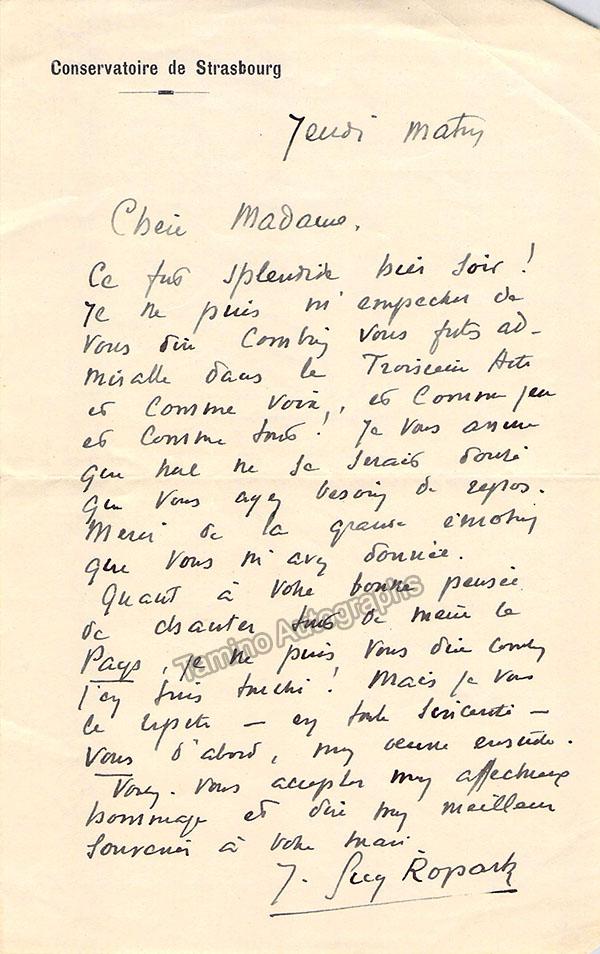 Conservatoire de Strasbourg
Jeudi matin
Chère Madame,
Ce fut splendide hier soir !
Je ne puis m'empecher de
vous dire combien vous futes ad-
mirable dans le Troisième Acte
et comme voix, et comme jeu
et comme tout ! Je vous assure
que nul ne se serait douté
que vous ayez besoin de repos.
Merci de la grande émotion
que vous m'avez donnée.
Quant à votre bonne pensée
de chanter tout de même le
Pays, je ne puis vous dire combien
j'en suis touché ! Mais je vous
le repete - en toute sincerité -
Vous d'abord, mon œuvre ensuite.
Voulez-vous accepter mon affectueux
hommage et dire mon meilleur
souvenir à votre mari
J. Guy Ropartz
Tamino Autographs